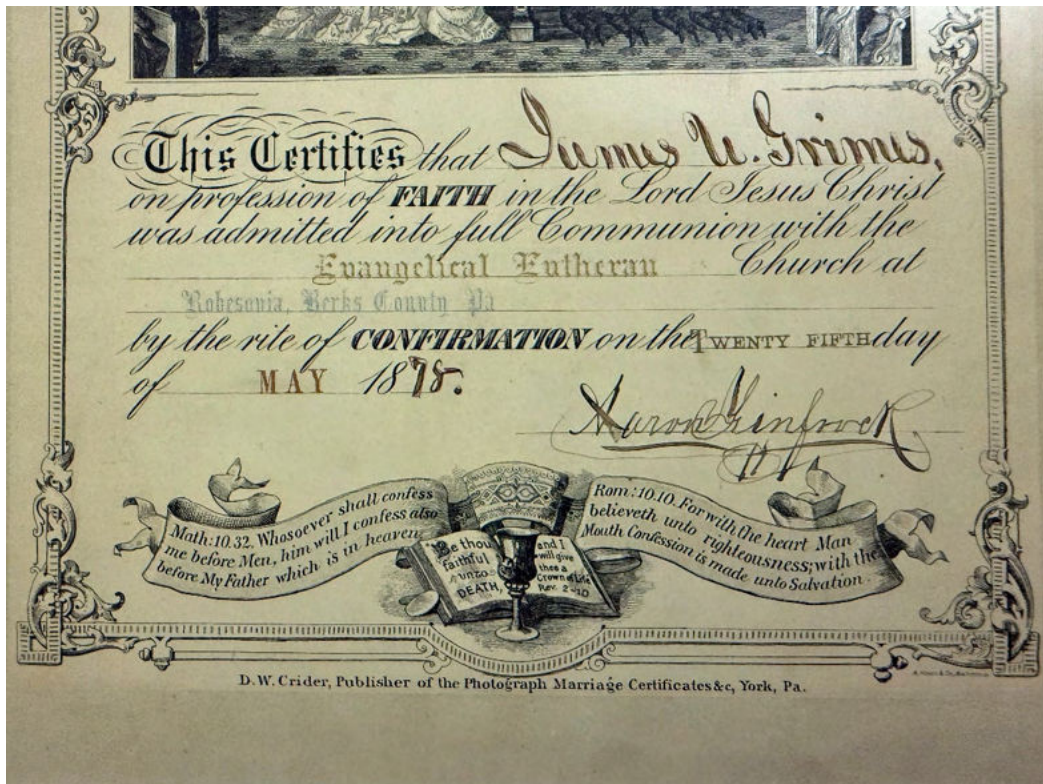 This Certifies that James U. Grimes,
on profession of FAITH in the Lord Jesus Christ
was admitted into full Communion with the
Evangelical Lutheran Church at
Robesonia, Berks County Pa
by the rite of CONFIRMATION on the TWENTY FIFTH day
of MAY 1878.
Aaron Finfrock
Math: 10.32. Whosoever shall confess
me before Men, him will I confess also
before My Father which is in heaven
"Be thou
faithful
unto
DEATH,
and I
will give
thee a
Crown of Life
Rev. 2-10
Rom: 10.10. For with the heart Man
believeth unto righteousness; with the
Mouth Confession is made unto Salvation.
D. W. Crider, Publisher of the Photograph Marriage Certificates &c, York, Pa.